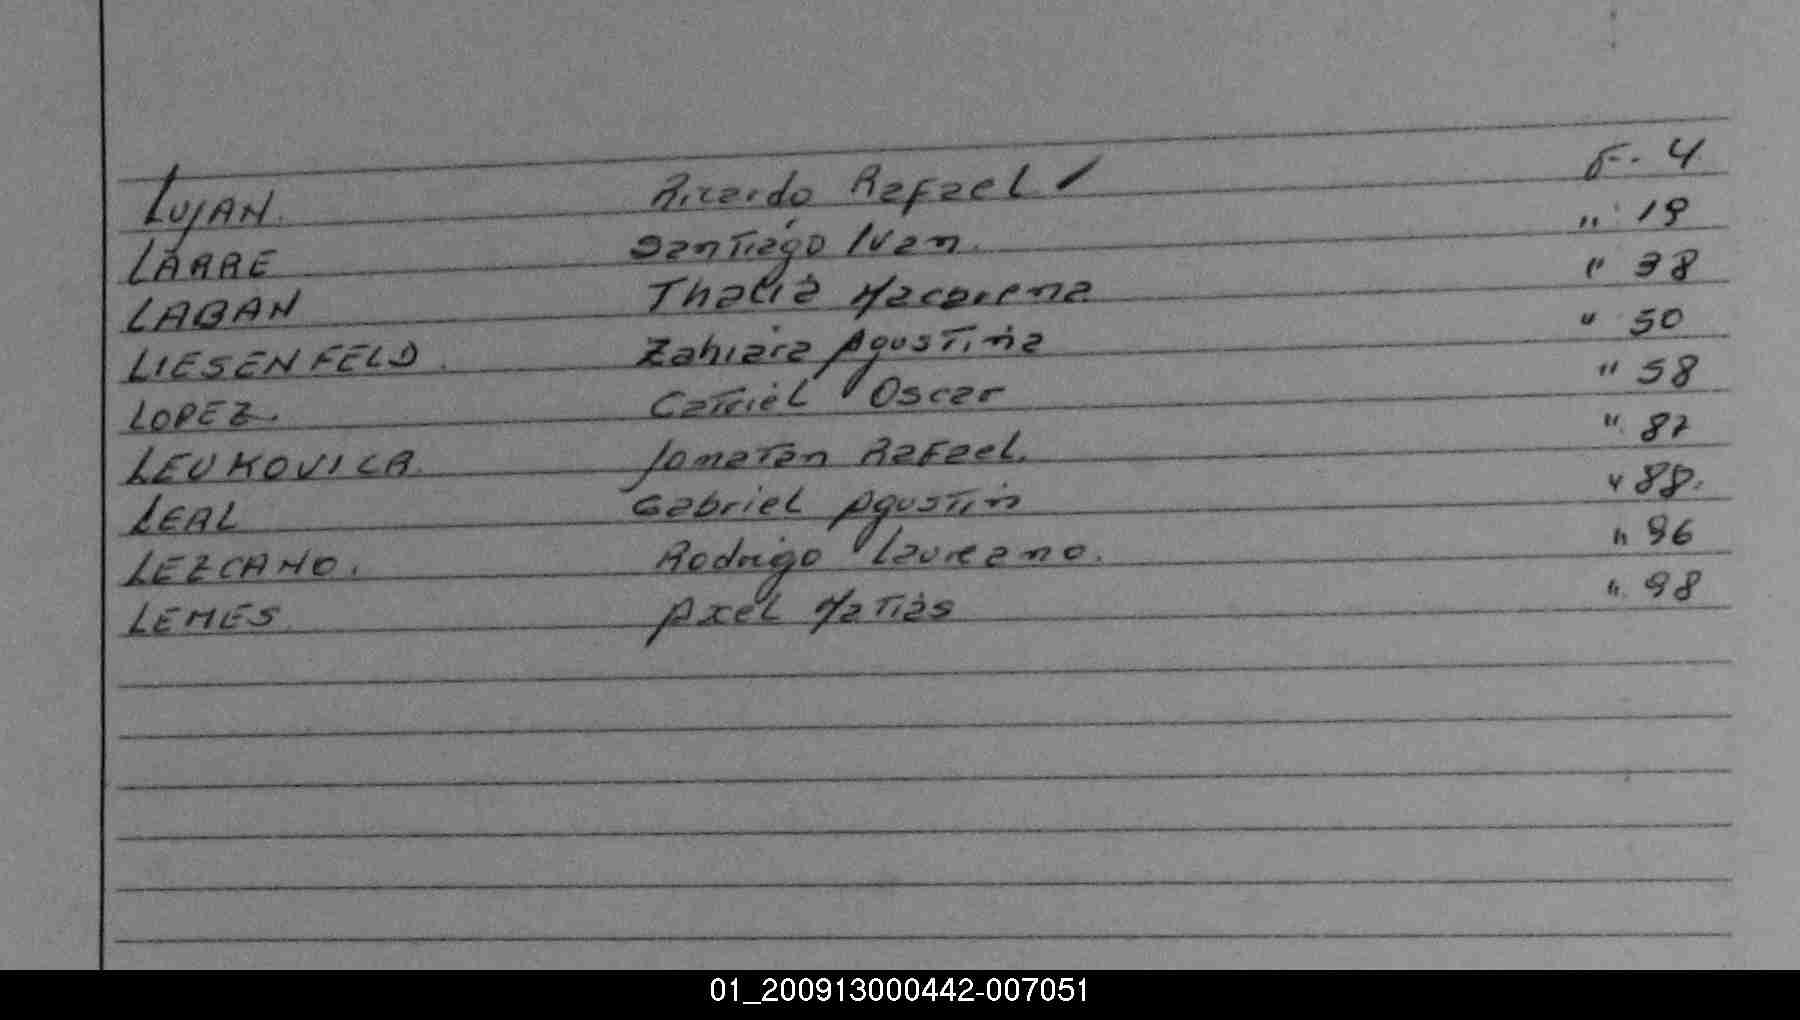 LUJAN. Ricardo Rafael ✓ F. 4
LARRE Santiago Ivan. " 19
LABAN Thalia Macarena " 38
LIESENFELD. Zahiara Agustina " 50
LOPEZ. Catriel Oscar " 58
LEUKOVICR. Jonatan Rafael. " 87
LEAL Gabriel Agustin " 88.
LEZCANO. Rodrigo Laureano. " 96
LEMES Axel Matias " 98
01_200913000442-007051